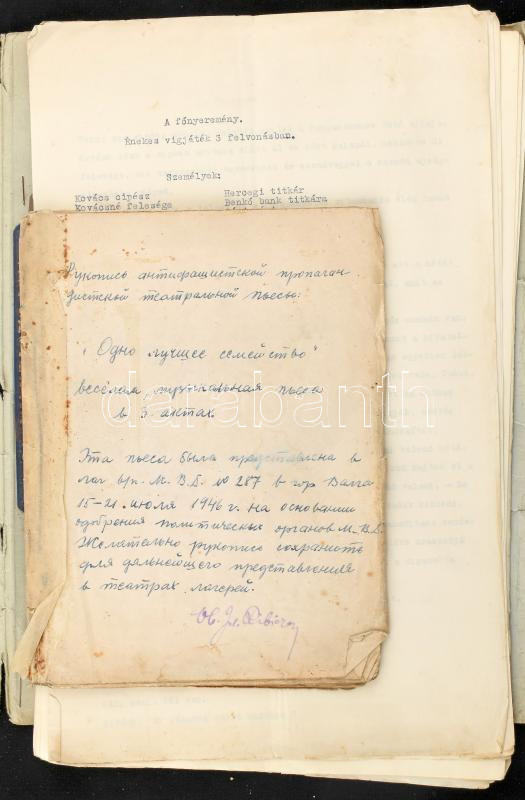 A főnyeremény.
Énekes vigjáték 3 felvonásban.
Személyek:
Kovács cipész
Kovácsné felesége
Hercegi titkár
Benkó bank titkára
Рукопись антифашистской пропаган
дистской театральной пьесы:
„Одно лучшее семейство"
весёлая, музыкальная пьеса
в 3. актах
Эта пьеса была представлена в
лаг в/п. М.В.Д. № 287 в гор Валга
15-21. июля 1946 г. на основании
одобрения политических органов М.В.Д.
Желательно рукопись сохранить
для дальнейшего представления
в театрах лагерей.
darabanth